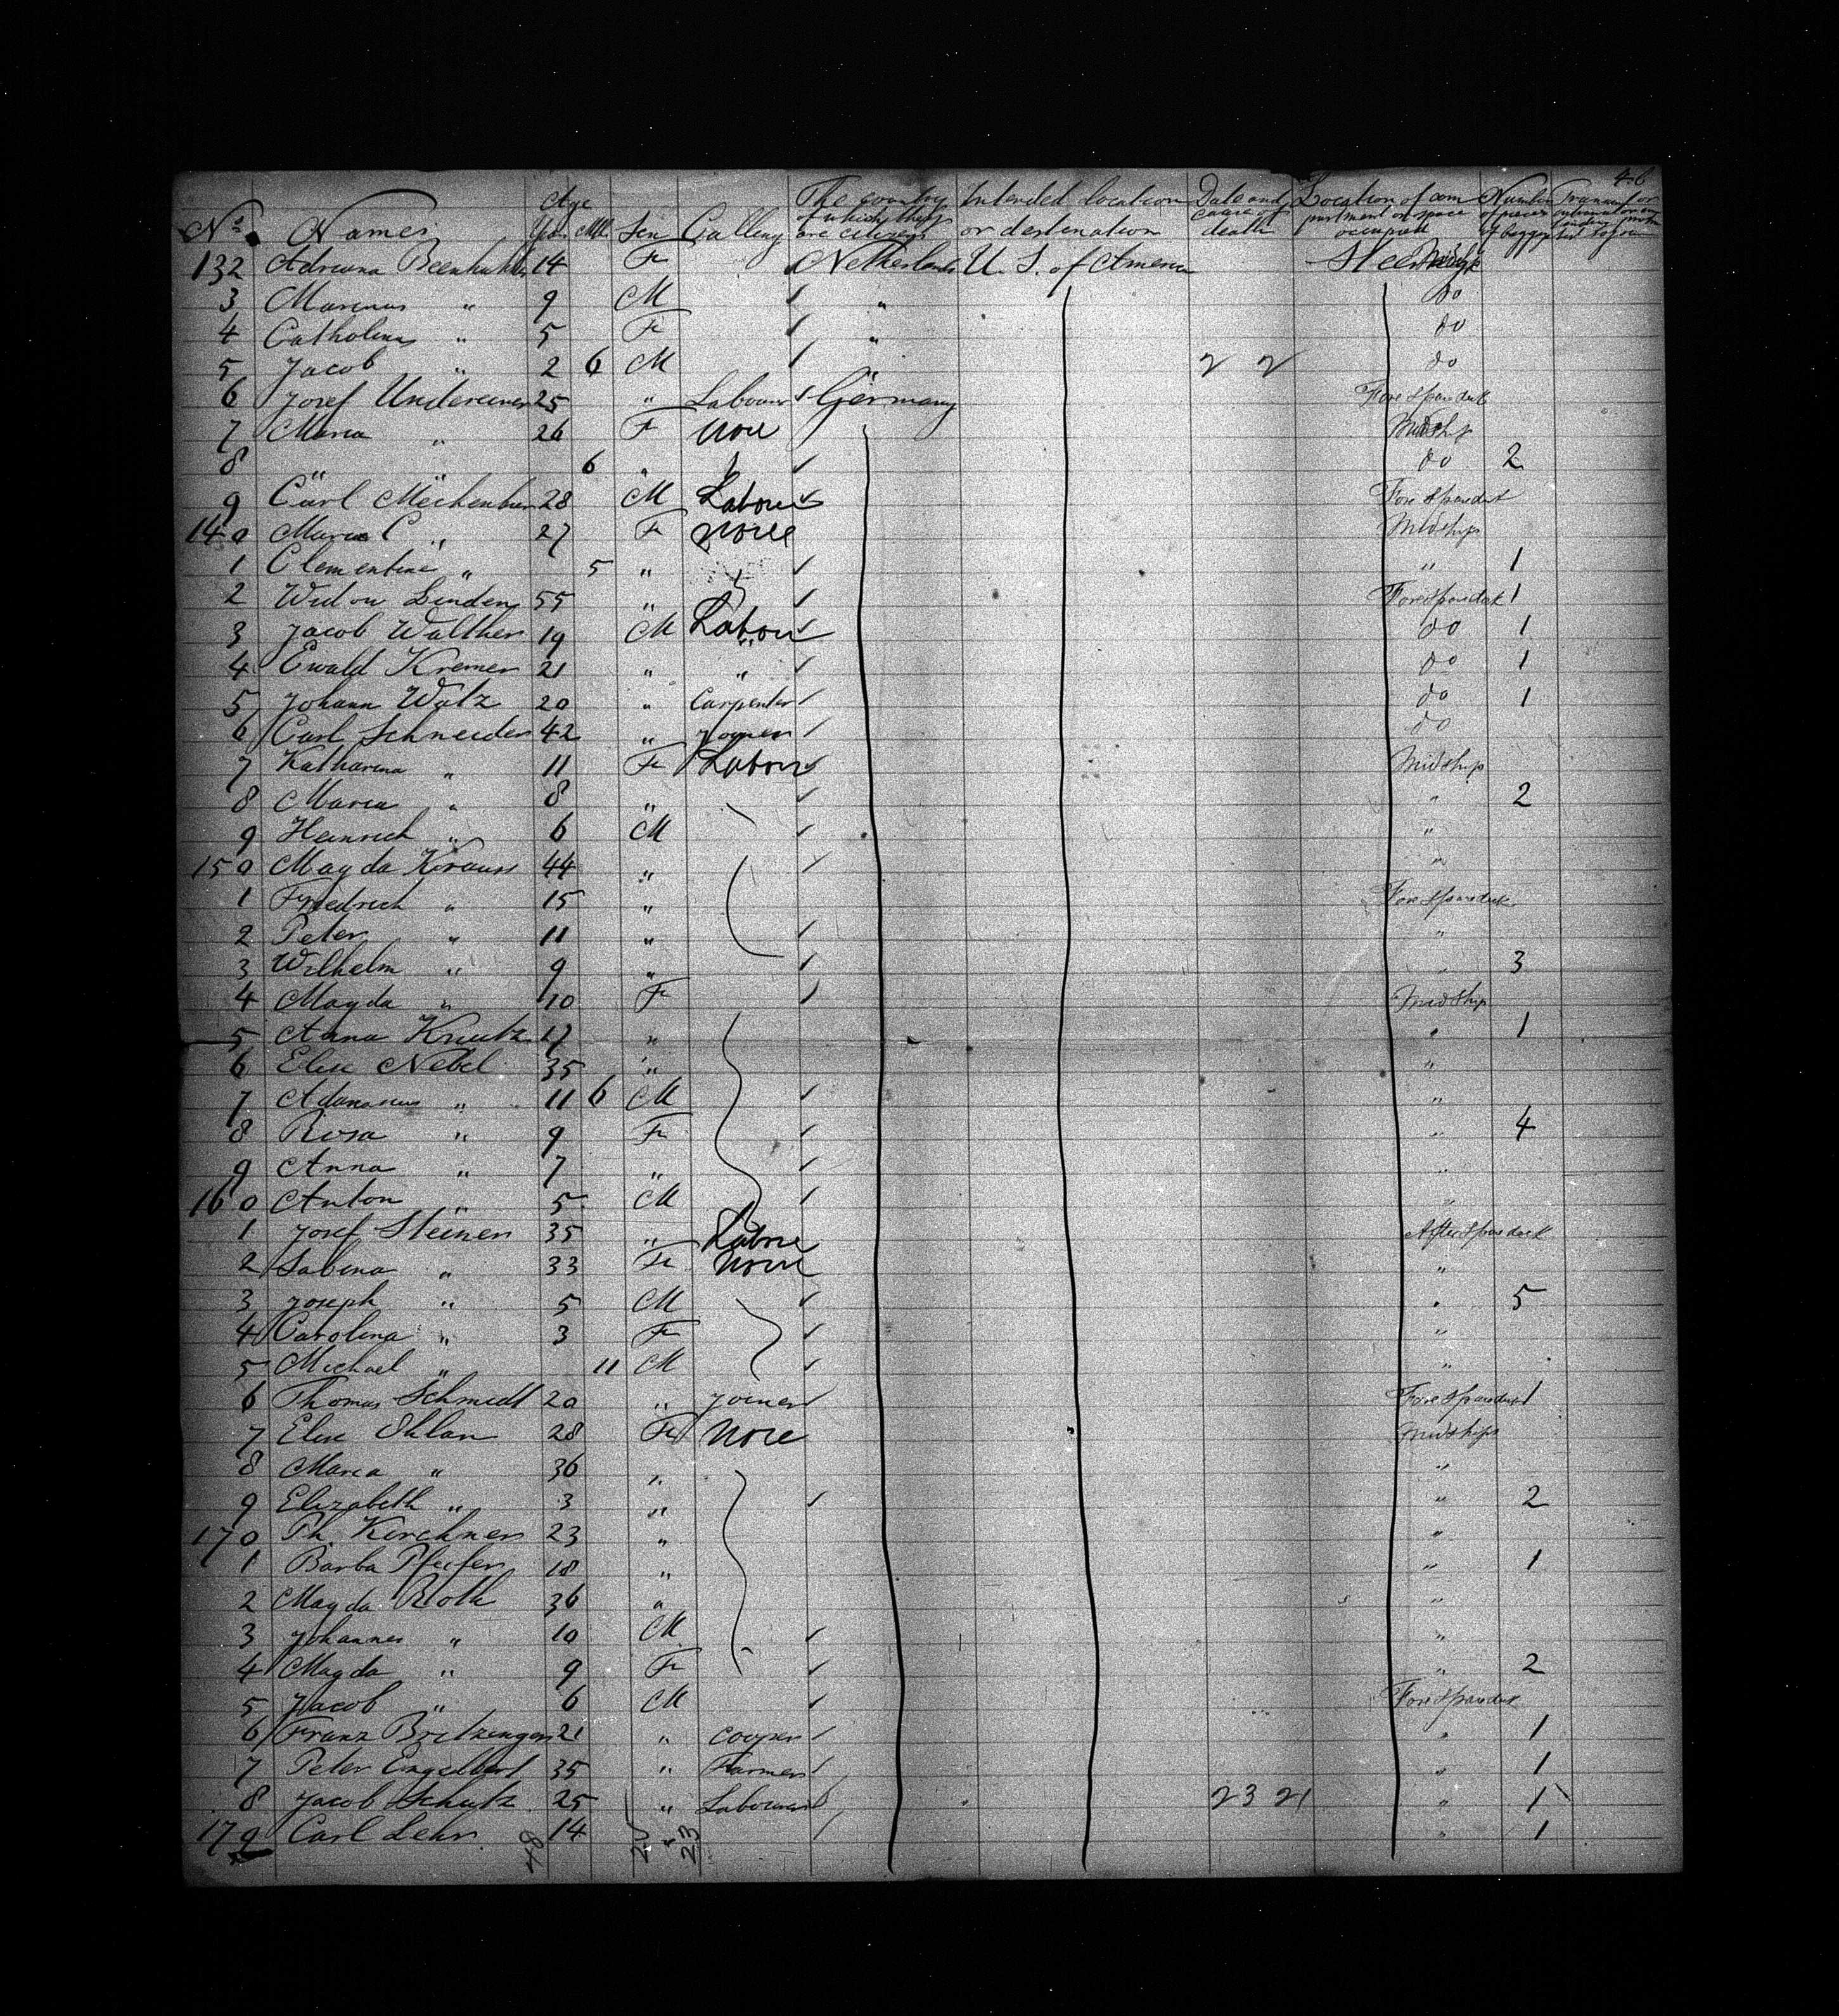 4.6
No. Names Age Yrs Mth Sex Calling The country of which they are citizens Intended location or destination Date and cause of death Location of compartment or space occupied Number of pieces of baggage
132 Adriana 14 F Netherlands U. S. of America
3 Marinus " 9 M " do
4 " 5 F " do
5 Jacob " 2 6 M " 2 2 do
6 Josef 25 " Labourer Germany Fore Spardeck
7 Maria " 26 F None Midship
8 " " 6 " do 2
9 Carl 28 M Labour Fore Spardeck
140 Maria C " 27 F None Midships
1 Clementine " 5 " " 1
2 Widow Linden 55 " Fore Spardeck 1
3 Jacob Walther 19 M Labour do 1
4 Ewald Kremer 21 " " do 1
5 Johann Walz 20 " Carpenter do 1
6 Carl Schneider 42 " Joiner do
7 Katharina " 11 F Labour Midship
8 Maria " 8 " " 2
9 Heinrich " 6 M "
150 Magda Krauss 44 " "
1 Friedrich " 15 " Fore Spardeck
2 Peter " 11 " "
3 Wilhelm " 9 " " 3
4 Magda " 10 F Midship
5 Anna 17 " " 1
6 Elise Nebel 35 " "
7 " 11 6 M "
8 Rosa " 9 F " 4
9 Anna " 7 " "
160 Anton " 5 M "
1 Josef Steiner 35 " Labour After Spardeck
2 Sabina " 33 F None "
3 Joseph " 5 M " 5
4 Carolina " 3 F "
5 Michael " 11 M "
6 Thomas Schmidt 20 " Joiner Fore Spardeck 1
7 Elise 28 F None Midships
8 Maria " 36 " "
9 Elizabeth " 3 " " 2
170 Th Kirchner 23 " "
1 Barba Pfeifer 18 " " 1
2 Magda Roth 36 " "
3 Johannes " 10 M "
4 Magda " 9 F " 2
5 Jacob " 6 M Fore Spardeck
6 Franz 21 " Cooper " 1
7 Peter Engelbert 35 " Farmer " 1
8 Jacob Schutz 25 " Labourer 23 21 " 1
179 Carl Lehr 14 " 1
48 25 23